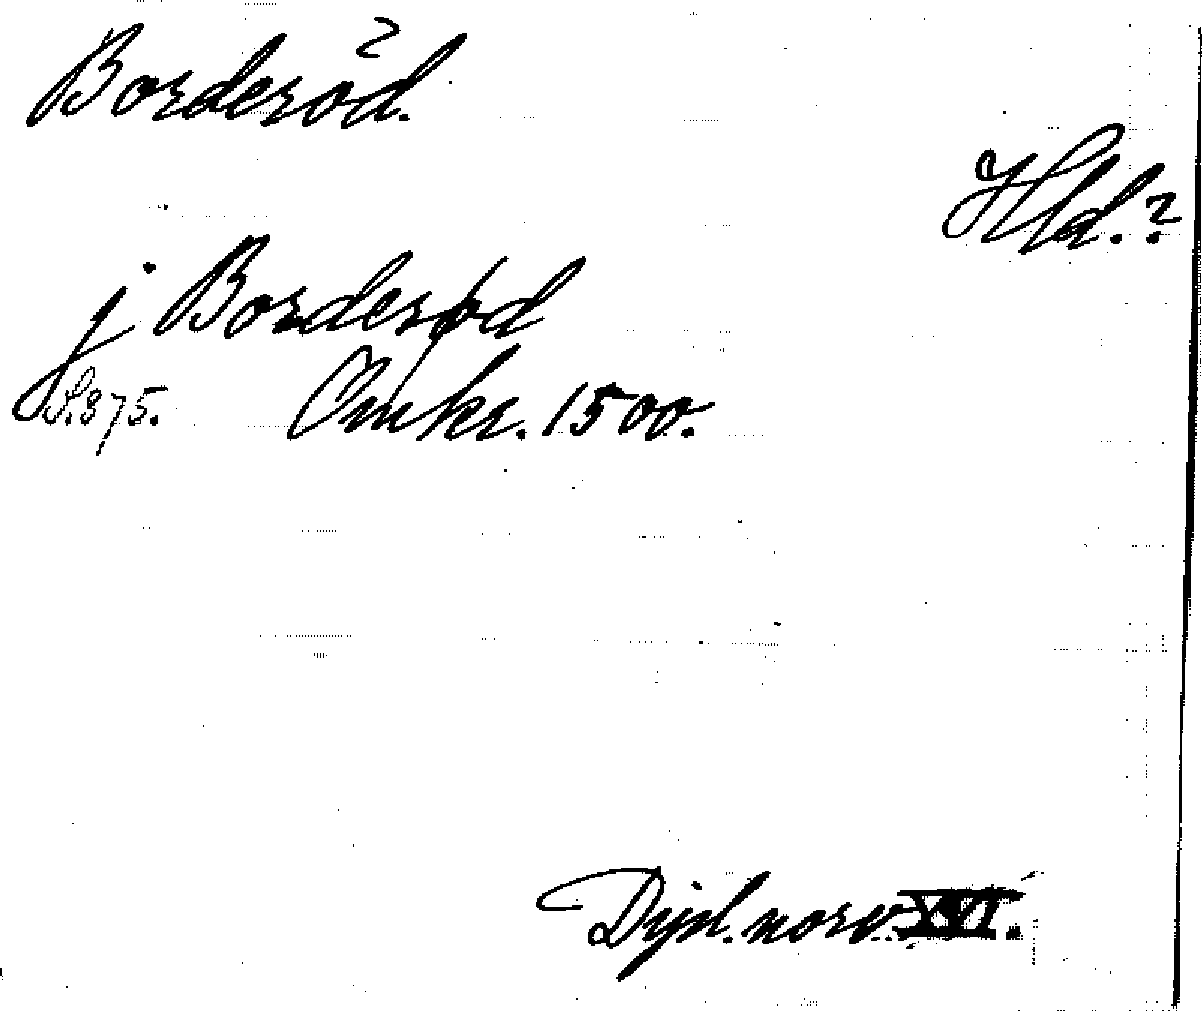 Borderöd.
Hld.?
j Borderød
S. 375. Omkr. 1500.
Dipl. norv. XVI.